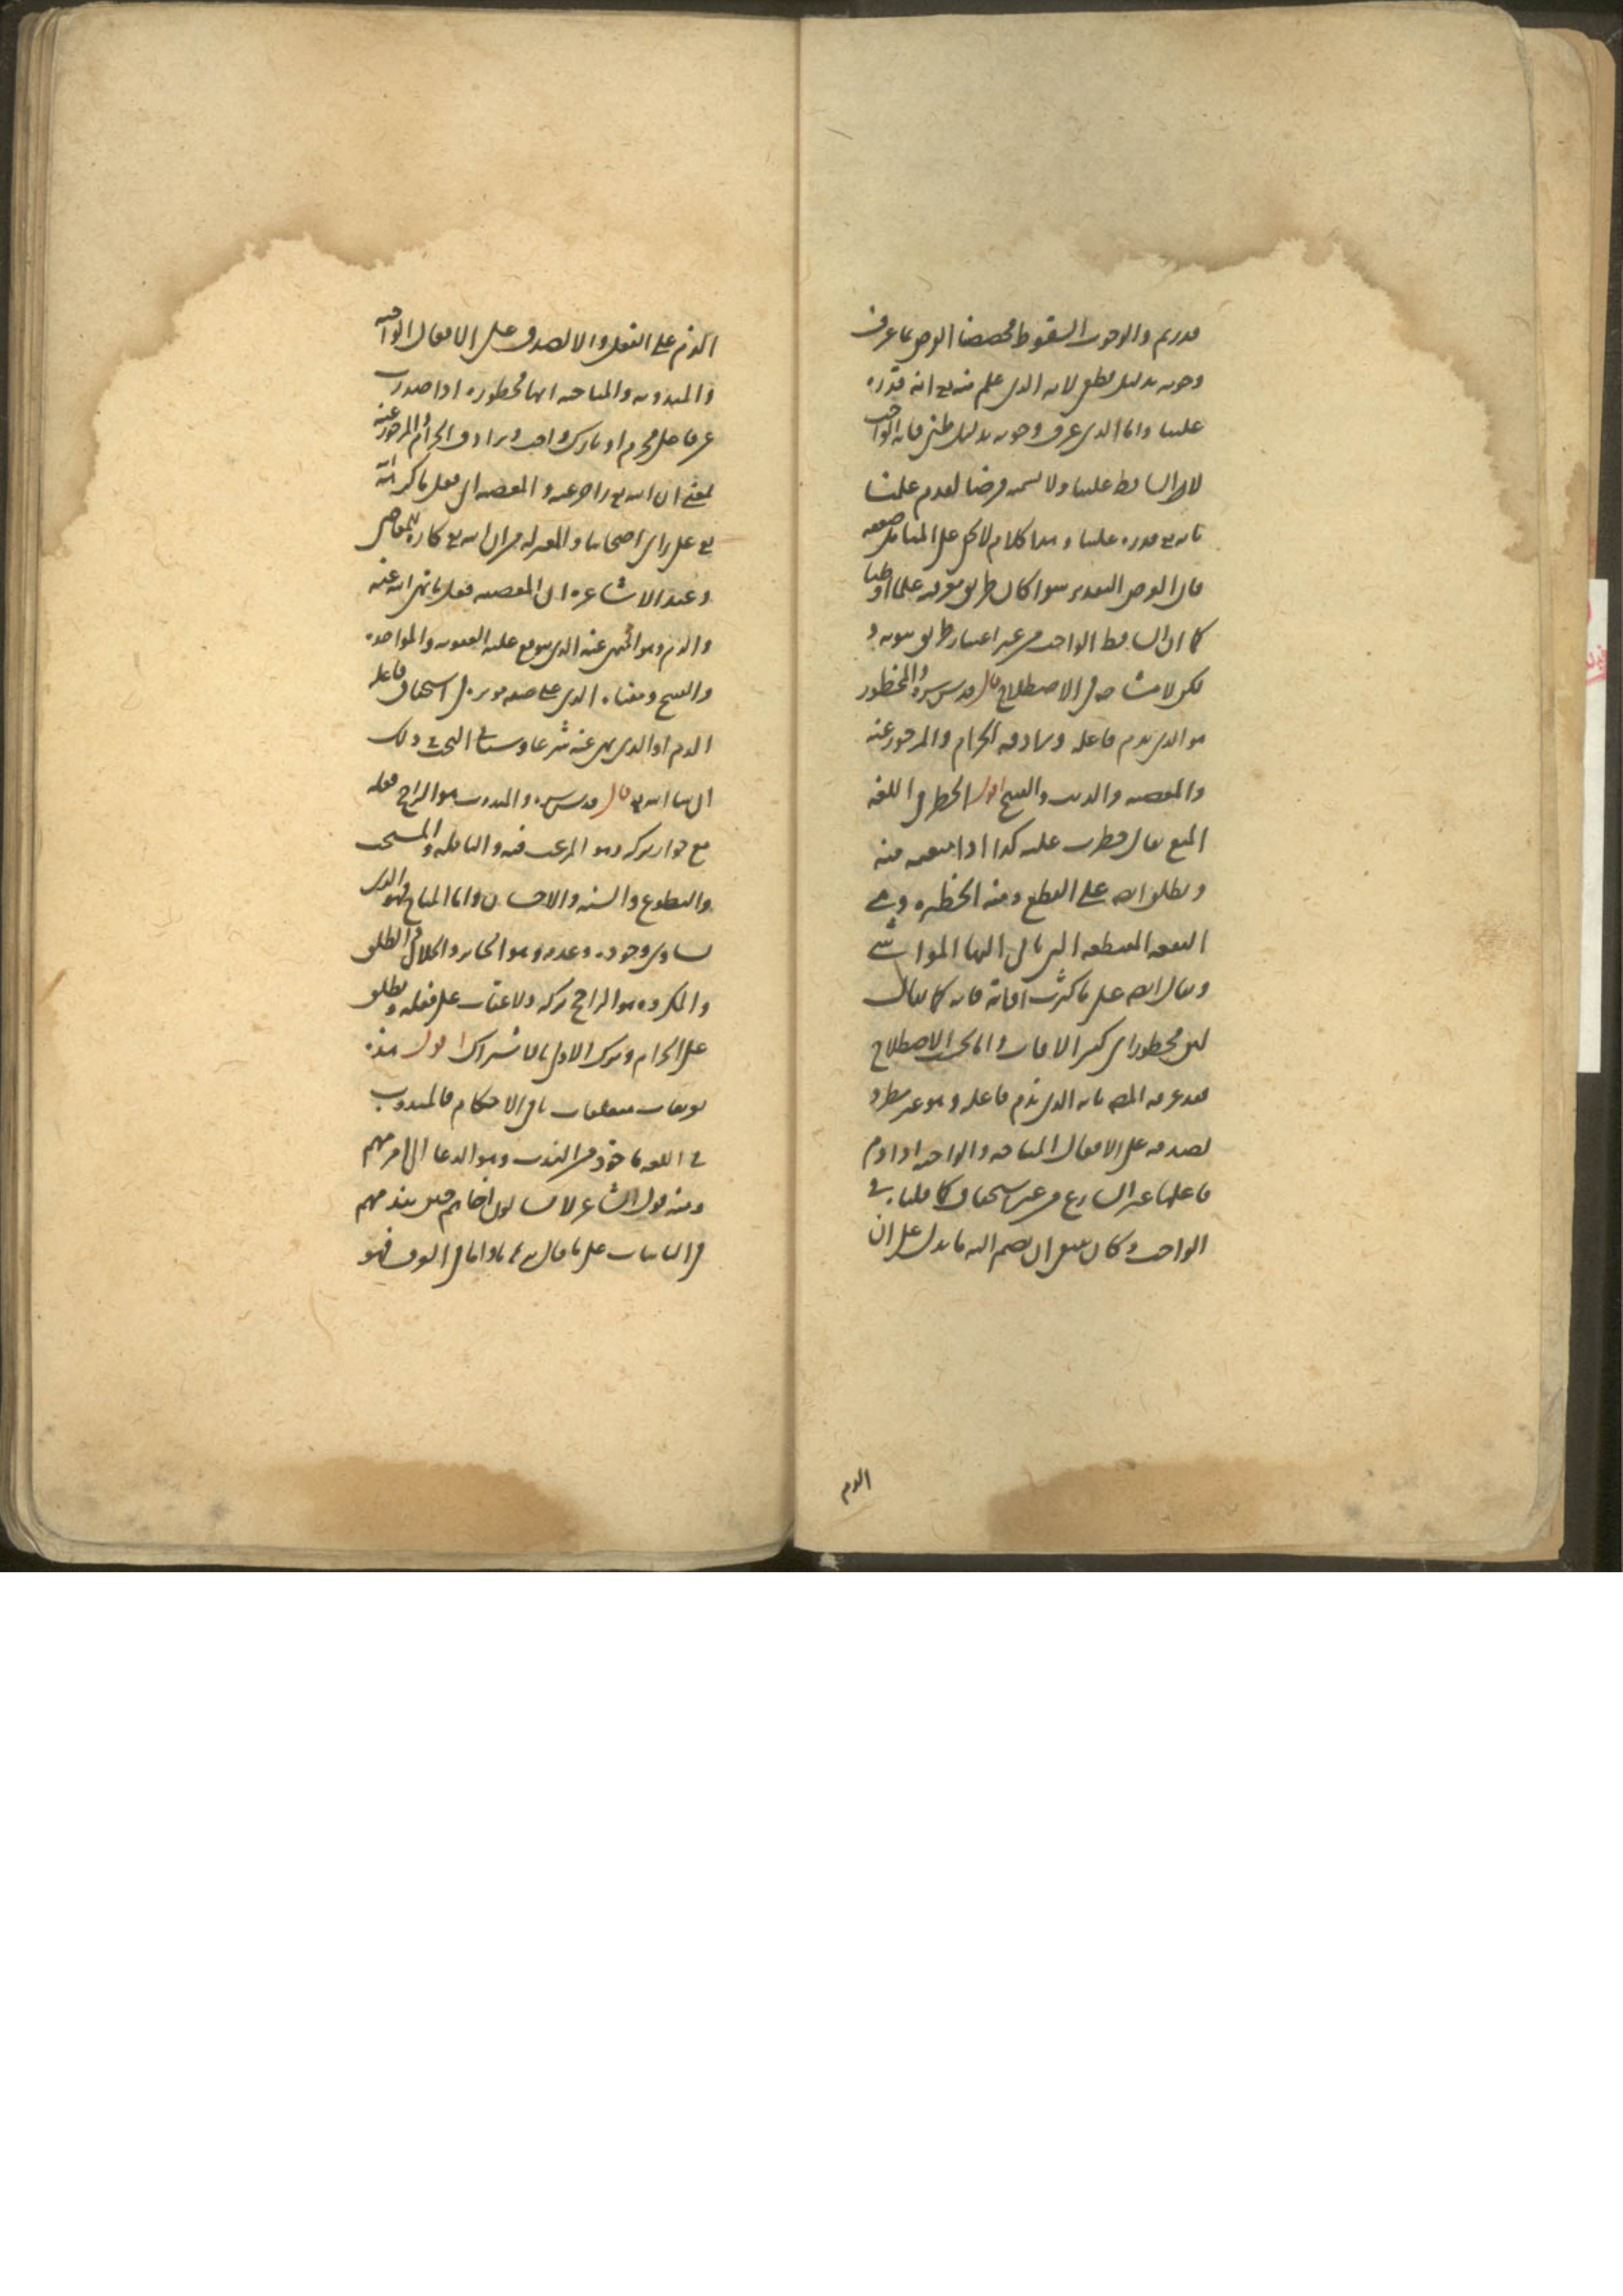 قدرتم والوجوب السقوط فخصصنا الفرض بما عرف
وجوبه بدليل قطعي لانه الذي علم منه تع انه قدره
علينا واما الذي عرف وجوبه بدليل ظني فانه الواجب
لانه الساقط علينا ولا نسميه فرضا لعدم علمنا
بانه تع قدره علينا وهذا كلام لا يخفى على المتامل ضعفه
فان الفرض التقدير سوا كان طريق معرفته علما او ظنا
كما ان الساقط الواجب من غير اعتبار طريق ثبوته و
لكن لا مشاحة في الاصطلاح قال قدس سره والمحظور
هو الذي يذم فاعله ويرادفه الحرام والمزجور عنه
والمعصية والذنب والقبيح اقول الحظر في اللغة
المنع يقال حظرت عليه كذا اذا منعته منه
ويطلق ايضا على القطع ومنه الحظيرة وهي
البقعة المنقطعة التي ياتي اليها المواشي
ويقال ايضا على ما كثرت افاته فانه كما يقال
لبن محظور اي كثير الافات واما بحسب الاصطلاح
فقد عرفه المص بانه الذي يذم فاعله وهو غير مطرد
لصدقه على الافعال المباحة والواجبة اذا ذم
فاعلها غير الشارع من غير استحقاق كما قلناه في
الواجب وكان ينبغي ان يضم اليه ما يدل على ان
الذم
الذم على الفعل والا لصدق على الافعال الواجبة
والمندوبة والمباحة انها محظورة اذا صدرت
عن فاعل محرم او تارك واجب ويرادف الحرام والمزجور عنه
بمعنى ان الله تع زاجر عنه والمعصية اي فعل ما كره الله
تع على راي اصحابنا والمعتزلة من ان الله تع كاره للمعاصي
وعند الاشاعرة ان المعصية فعل ما نهى الله عنه
والذنب وهو المنهي عنه الذي يتوقع عليه العقوبة والمواخذة
والقبيح ومعناه الذي على صفة موثرة في استحقاق فاعله
الذم او الذي نهى عنه شرعا وسياتي البحث في ذلك
ان شا الله تع قال قدس سره والمندوب هو الراجح فعله
مع جواز تركه وهو المرغب فيه والنافلة والمستحب
والتطوع والسنة والاحسان واما المباح فهو الذي
تساوى وجوده وعدمه وهو الجايز والحلال والطلق
والمكروه هو الراجح تركه ولا عقاب على فعله ويطلق
على الحرام وترك الاولى بالاشتراك اقول هذه
تعريفات متعلقات باقي الاحكام فالمندوب
في اللغة ماخوذ من الندب وهو الدعا الى امر مهم
ومنه قول الشاعر لا يسالون اخاهم حين يندبهم
في النايبات على ما قال برهانا واما في العرف فهو